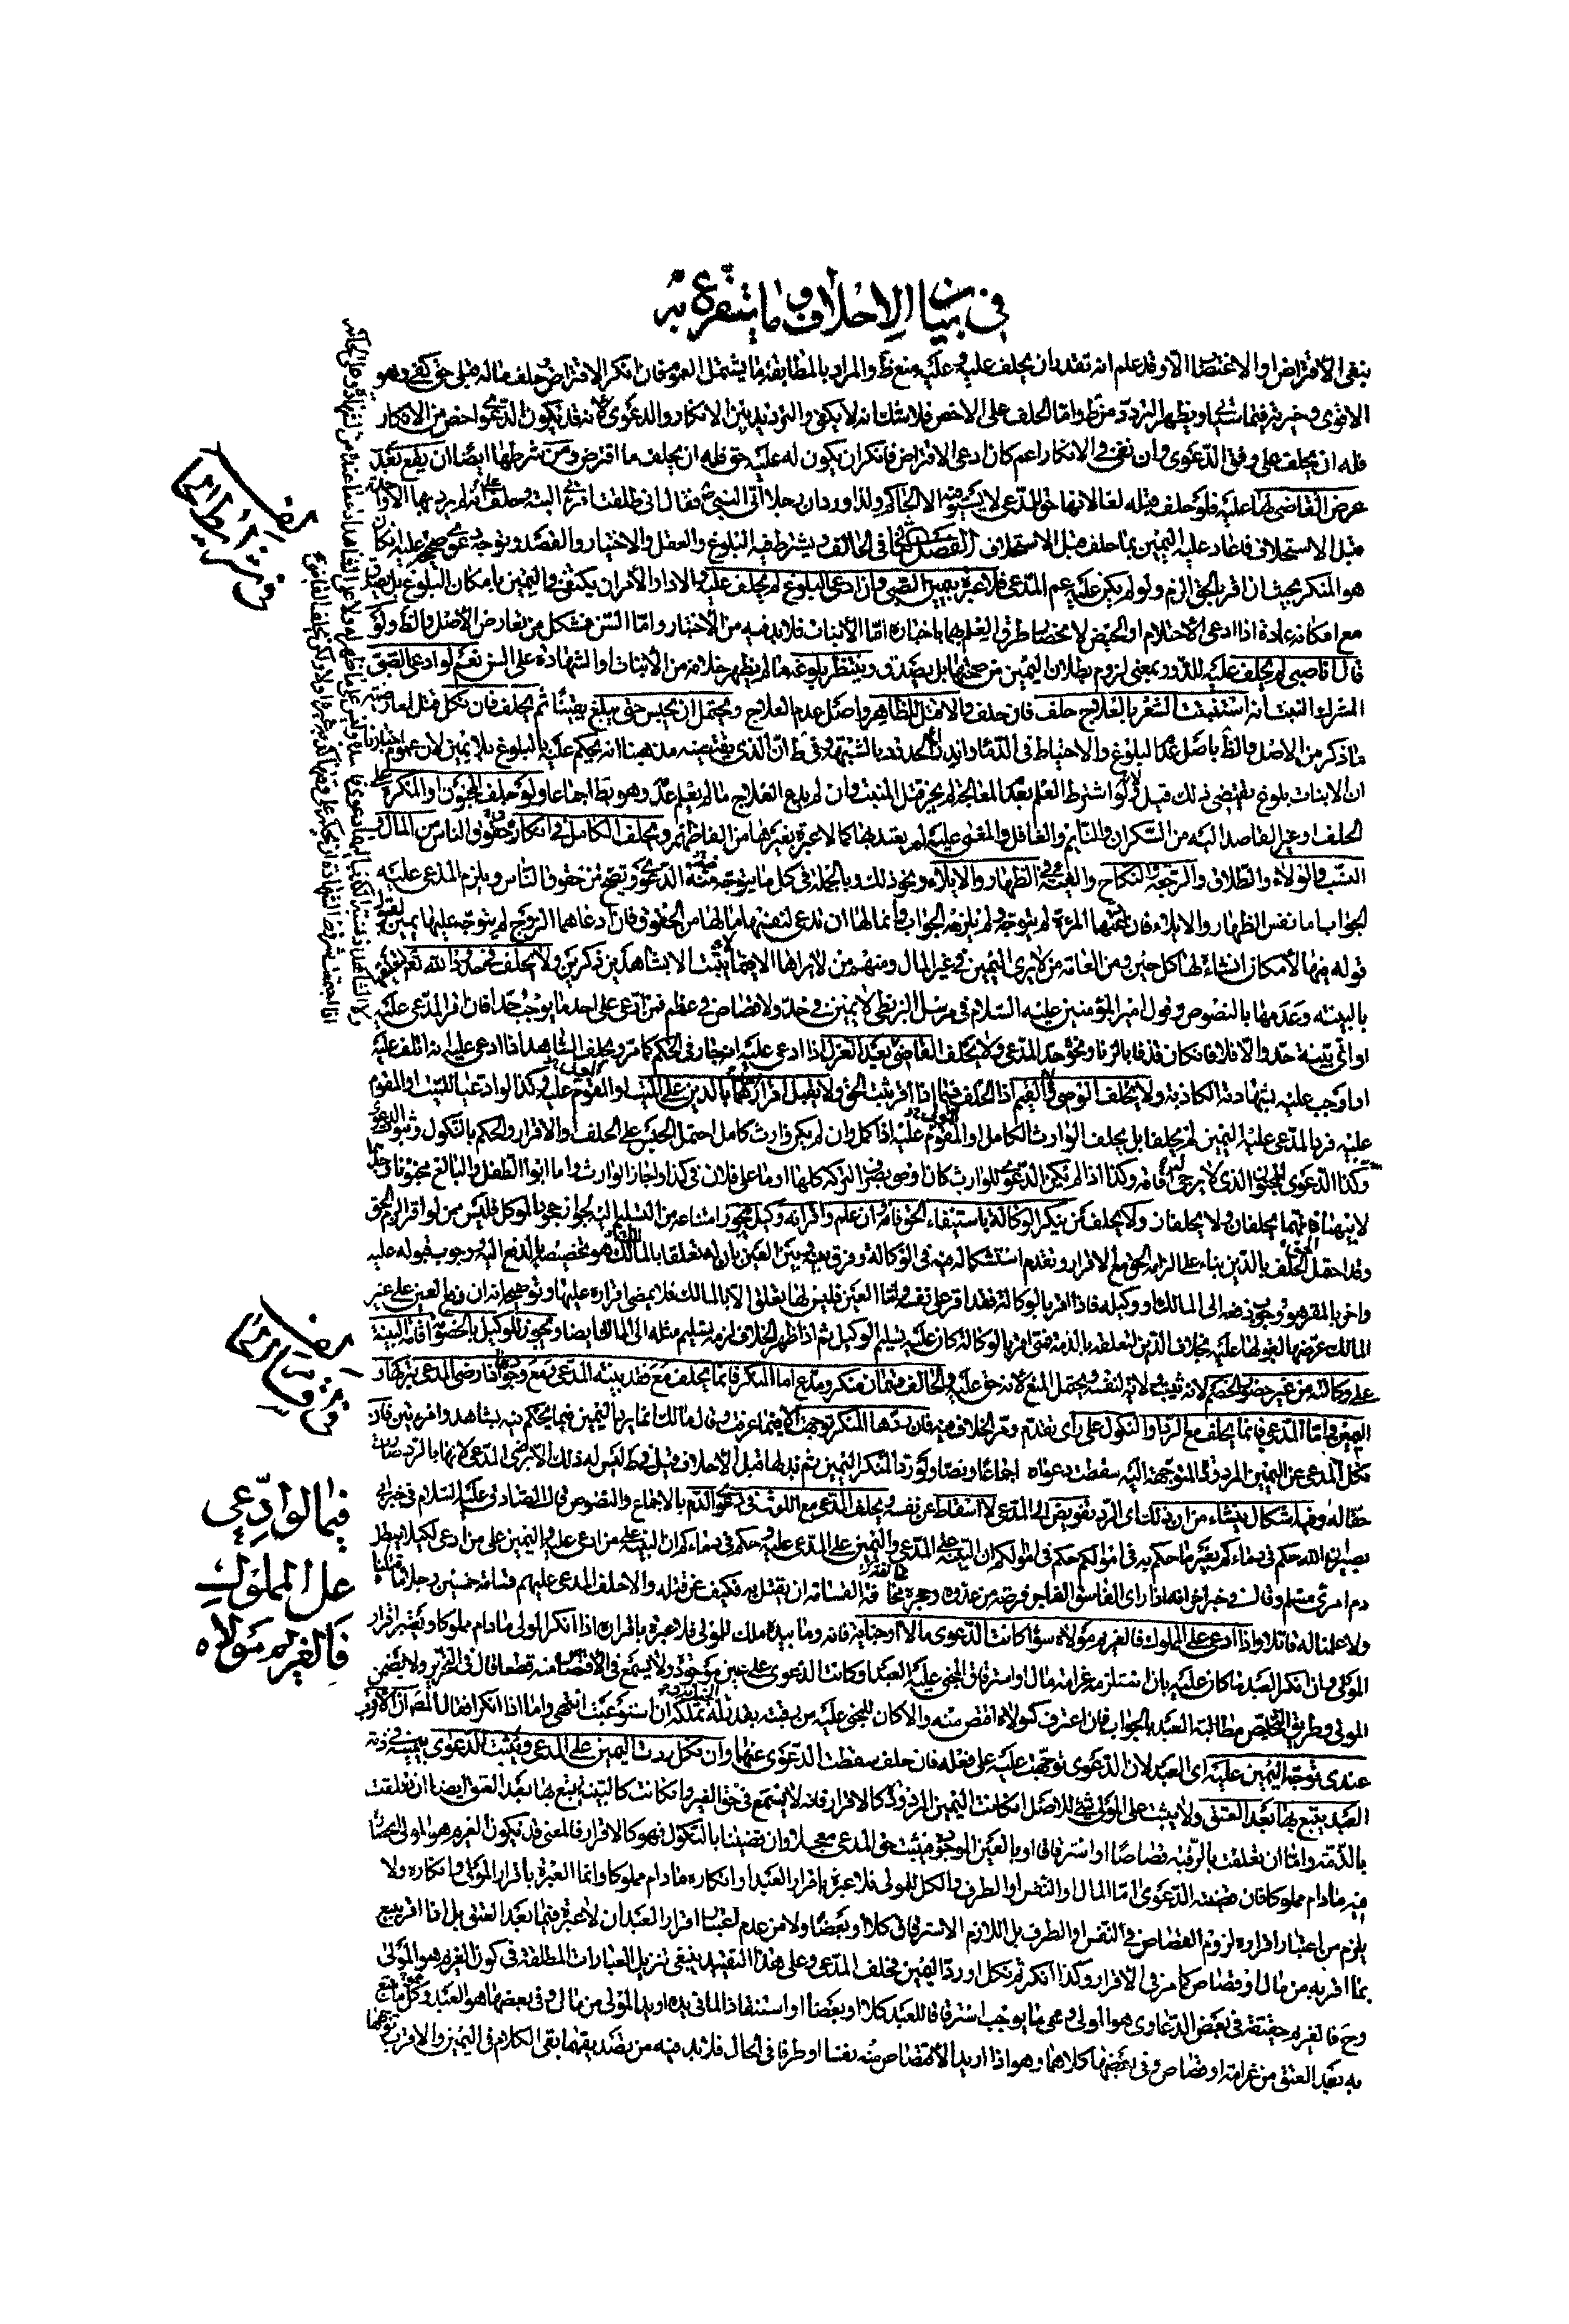 في بيان الاحلاف وما يتفرع به
بنفى الاقتراض او الاغتصاب الا وقد علم انه تقدر ان يحلف عليه وعليه منع ظ والمراد بالمطابقة ما يشتمل العموم فان انكر الاقتراض حلف ماله قبلى حق كفى وهو
الاقوى وخيرته فيما شاء ويظهر التردد من ط واما الحلف على الاخص فلا شك انه لا يكفى والترديد بين الانكار والدعوى لانه قد يكون الدعوى اخص من الانكار
فله ان يحلف على وفق الدعوى وان نفى في الانكار اعم كان ادعى الاقتراض فانكر ان يكون له عليه حق فله ان يحلف ما اقترض ومن شرطها ايضا ان يقع بعد
عرض القاضى لها عليه فلو حلف قبله لغا لانها حق للمدعى لا يستوفيه الا الحاكم ولذا ورد ان رجلا اتى النبى فقال انى طلقت امرأتى البتة وحلف انه لم يرد بها الا واحدة
قبل الاستحلاف فاعاد عليه اليمين بما حلف قبل الاستحلاف الفصل الثانى في الحالف ويشترط فيه البلوغ والعقل والاختيار والقصد وتوجه دعوى صحيحة عليه ان كان
هو المنكر بحيث ان اقر بالحق الزم ولو لم يكن عليه يمين المدعى فلا عبرة بيمين الصبى وان ادعى البلوغ لم يحلف عليه والا دار الامر ان يكتفى في اليمين بامكان البلوغ بل يصدق
مع امكانه عادة اذا ادعى الاحتلام او الحيض لانحصار طرق العلم بهما باخباره اما الانبات فلا بد فيه من الاختبار واما السن فمشكل من تعارض الاصل والظ ولو
قال انا صبى لم يحلف عليه للدور بمعنى لزوم بطلان اليمين من صحتها بل يصدق وينتظر بلوغه ما لم يظهر خلافه من الانبات او الشهادة على السن نعم لو ادعى الصبى
المشرك النبت انه استنبت الشعر بالعلاج حلف فان حلف والا قتل للظاهر واصل عدم العلاج ويحتمل ان يحبس حتى يبلغ يقينا ثم يحلف فان نكل قتل لمعارضة
ما ذكر من الاصل والظ باصل عدم البلوغ والاحتياط في الدماء واندراء الحدود بالشبهة وفى ط ان الذى يقتضيه مذهبنا انه يحكم عليه بالبلوغ بلا يمين لان عموم اخبارنا
ان الانبات بلوغ يقتضى ذلك قيل ولو اشترط العلم بعدم المعالجة لم يجز قتل المنبت وان لم يدع العلاج ما لم يعلم عدمه وهو بط اجماعا ولو حلف المجنون او المكره على
الحلف او غير القاصد اليه من السكران والنايم والغافل والمغمى عليه لم يعتد بها كما لا عبرة بغيرها من الفاظهم ويحلف الكامل في انكاره حقوق الناس من المال و
النسب والولاء والطلاق والرجعة والنكاح والفئة في الظهار والايلاء ونحو ذلك وبالجملة في كل ما يتوجه منه الدعوى وتصح من حقوق الناس ويلزم المدعى عليه
الجواب اما نفس الظهار والايلاء فان ادعتهما المراة لم يتوجه ولم يلزمه الجواب وانما لها ان تدعى لنفسها ما لها من الحقوق فان ادعاهما الزوج لم يتوجه عليها يمين لقبول
قوله فيهما لامكان انشائه لهما كل حين ومن العامة من لا يرى اليمين في غير المال ومنهم من لا يراها الا فيما يثبت الا بشاهدين ذكرين ولا يحلف في حدود الله تعالى
بالبينة وعدمها بالنصوص وقول امير المؤمنين عليه السلام في مرسل البزنطى لا يمين في حد ولا قصاص في عظم فمن ادعى على احد ما يوجب حدا فان اقر المدعى عليه
او اتى ببينة حد والا فلا فان كان قذفا بالزنا ونحوه حد المدعى ولا يحلف القاضى بعد العزل اذا ادعى عليه انه جار في الحكم كما مر ويحلف الشاهد اذا ادعى عليه انه اتلف عليه
او اوجب عليه بشهادته الكاذبة ولا يحلف الوصى والقيم اذ الحلف فيما اذا اقر يثبت الحق ولا يقبل اقرارهما بالدين على الميت او المقوم عليه وكذا لو ادعيا للميت او المقوم
عليه فرد المدعى عليه اليمين لم يحلفا بل يحلف الوارث الكامل او المقوم عليه اذا كمل وان لم يكن وارث كامل احتمل الحبس على الحلف والاقرار والحكم بالنكول وثبوت
وكذا الدعوى للمجنون الذى لا يرجى افاقته وكذا اذا لم تكن الدعوى للوارث كان اوصى بصرف التركة كلها او ما على فلان في كذا واجاز الوارث واما ابوا الطفل والبالغ مجنونا
لابنهما فانهما يحلفان ولا يحلفان ولا يحلف من ينكر الوكالة باستيفاء الحق فانه وان علم واقر انه وكيل يجوز امتناعه من التسليم اليه لجواز جحود الموكل فليس ممن لو اقر الزم الحق
وقد احتمل الحلف بالدين بناء على الزامه الحق مع الاقرار وتقدم استشكاله فيه في الوكالة وفرق بينه وبين العين بان له تعلقا بالمالك هو تخصيصه بالدفع اليه ووجوب قبوله عليه
واخر بالمقر هو وجوب دفعه الى المالك او وكيله فاذا اقر بالوكالة فقد اقر على نفسه واما العين فليس لها تعلق الا بالمالك فلا يمضى اقراره عليها وتوضيحه انه ان دفع العين على غير
المالك عرضها لفواتها عليه بخلاف الدين لتعلقه بالذمة فمتى اقر بالوكالة كان عليه تسليم الوكيل ثم اذا ظهر الخلاف لزمه تسليم مثله الى المالك ايضا ويجوز للوكيل بالخصومة اقامة البينة
على وكالته من غير حضور الخصم لانه تثبيت ولاية لنفسه ويحتمل المنع لانه حق عليه والحالف قسمان منكر ومدع اما المنكر فانما يحلف مع فقد بينة المدعى ومع وجودها اذا رضى المدعى بتركها و
اليمين واما المدعى فانما يحلف مع الرد او النكول على راى تقدم ومر الخلاف فيه فان ردها المنكر توجهت الا فيما عرفت وقال مالك انما يرد اليمين فيما يحكم فيه بشاهد وامراتين فان
نكل المدعى عن اليمين المردودة المتوجهة اليه سقطت دعواه اجماعا ونصا ولو رد المنكر اليمين ثم بذلها قبل الاحلاف قيل في ط ليس له ذلك الا برضى المدعى لانها بالرد صارت
حقا له وفيه اشكال ينشاء من ان ذلك اى الرد تفويض الى المدعى لا اسقاط عن نفسه ويحلف المدعى مع اللوث في دعوى الدم بالاجماع والنصوص قال الصادق عليه السلام في خبر ابى
بصير ان الله حكم في دمائكم بغير ما حكم به في اموالكم حكم في اموالكم ان البينة على المدعى واليمين على المدعى عليه وحكم في دمائكم ان البينة على من ادعى عليه واليمين على من ادعى لكيلا يبطل
دم امرئ مسلم وقال في خبر اخر انه اذا راى الفاسق الفاجر فرصة من عدوه وحجزه مخافة القسامة ان يقتل به فكيف عن قتله والا حلف المدعى عليهم قسامة خمسين رجلا ما قتلنا
ولا علمنا له قاتلا واذا ادعى على المملوك فالغريم مولاه سواء كانت الدعوى مالا او جناية فانه وما بيده ملك للمولى فلا عبرة باقراره اذا انكر المولى ما دام مملوكا ويعتبر اقرار
المولى وان انكر العبد ما كان عليه بان استلزم غرامة مال او استرقاق المجنى عليه العبد او كانت الدعوى على عين موجودة ولا يسمع في الاقتصاص منه قطعا قال في التحرير ولا يضمن
المولى وطريق التخلص مطالبة العبد بالجواب فان اعترف كمولاه اقتص منه والا كان للمجنى عليه من رقبته بقدر تملكه ان استوعبت انتهى واما اذا انكرا فقال المصنف ان الاقرب
عندى توجه اليمين عليه اى العبد لان الدعوى توجهت عليه على فعله فان حلف سقطت الدعوى عنهما وان نكل ردت اليمين على المدعى وتثبت الدعوى بيمينه في ذمة
العبد يتبع بها بعد العتق ولا يثبت على المولى شئ للاصل ان كانت اليمين المردودة كالاقرار فانه لا يسمع في حق الغير وان كانت كالبينة يتبع بها بعد العتق ايضا ان تعلقت
بالذمة واما ان تعلقت بالرقبة قصاصا او استرقاقا او بالعين الموجودة فيثبت حق المدعى معجلا وان قضينا بالنكول فهو كالاقرار فالمعنى قد يكون الغريم هو المولى محضا
فيه ما دام مملوكا فان متضمنة الدعوى اما المال او النفس او الطرف والكل للمولى فلا عبرة باقرار العبد او انكاره ما دام مملوكا وانما العبرة باقرار المولى وانكاره ولا
يلزم من اعتبار اقراره لزوم القصاص في النفس والطرف بل اللازم الاسترقاق كلا او بعضا ولا من عدم اعتبار اقرار العبد ان لا عبرة فيما بعد العتق بل اذا اقر يتبع
بما اقر به من مال او قصاص كما مر في الاقرار وكذا ان انكر ثم نكل او رد اليمين فحلف المدعى وعلى هذا التقييد ينبغى تنزيل العبارات المطلقة في كون الغريم هو المولى
وح فالغريم حقيقة في بعض الدعاوى هو المولى وهى ما يوجب استرقاقا للعبد كلا او بعضا او استنقاذ الما في يده او يد المولى من مال وفى بعضها هو العبد وكل ما يتبع
به بعد العتق من غرامة او قصاص وفى بعضها كلاهما وهو اذا اريد الاقتصاص منه نفسا او طرفا في الحال فلا بد فيه من تصديقهما بقى الكلام في اليمين والاقرب توجهها
فيما لو ادعى
على المملوك
فالغريم مولاه